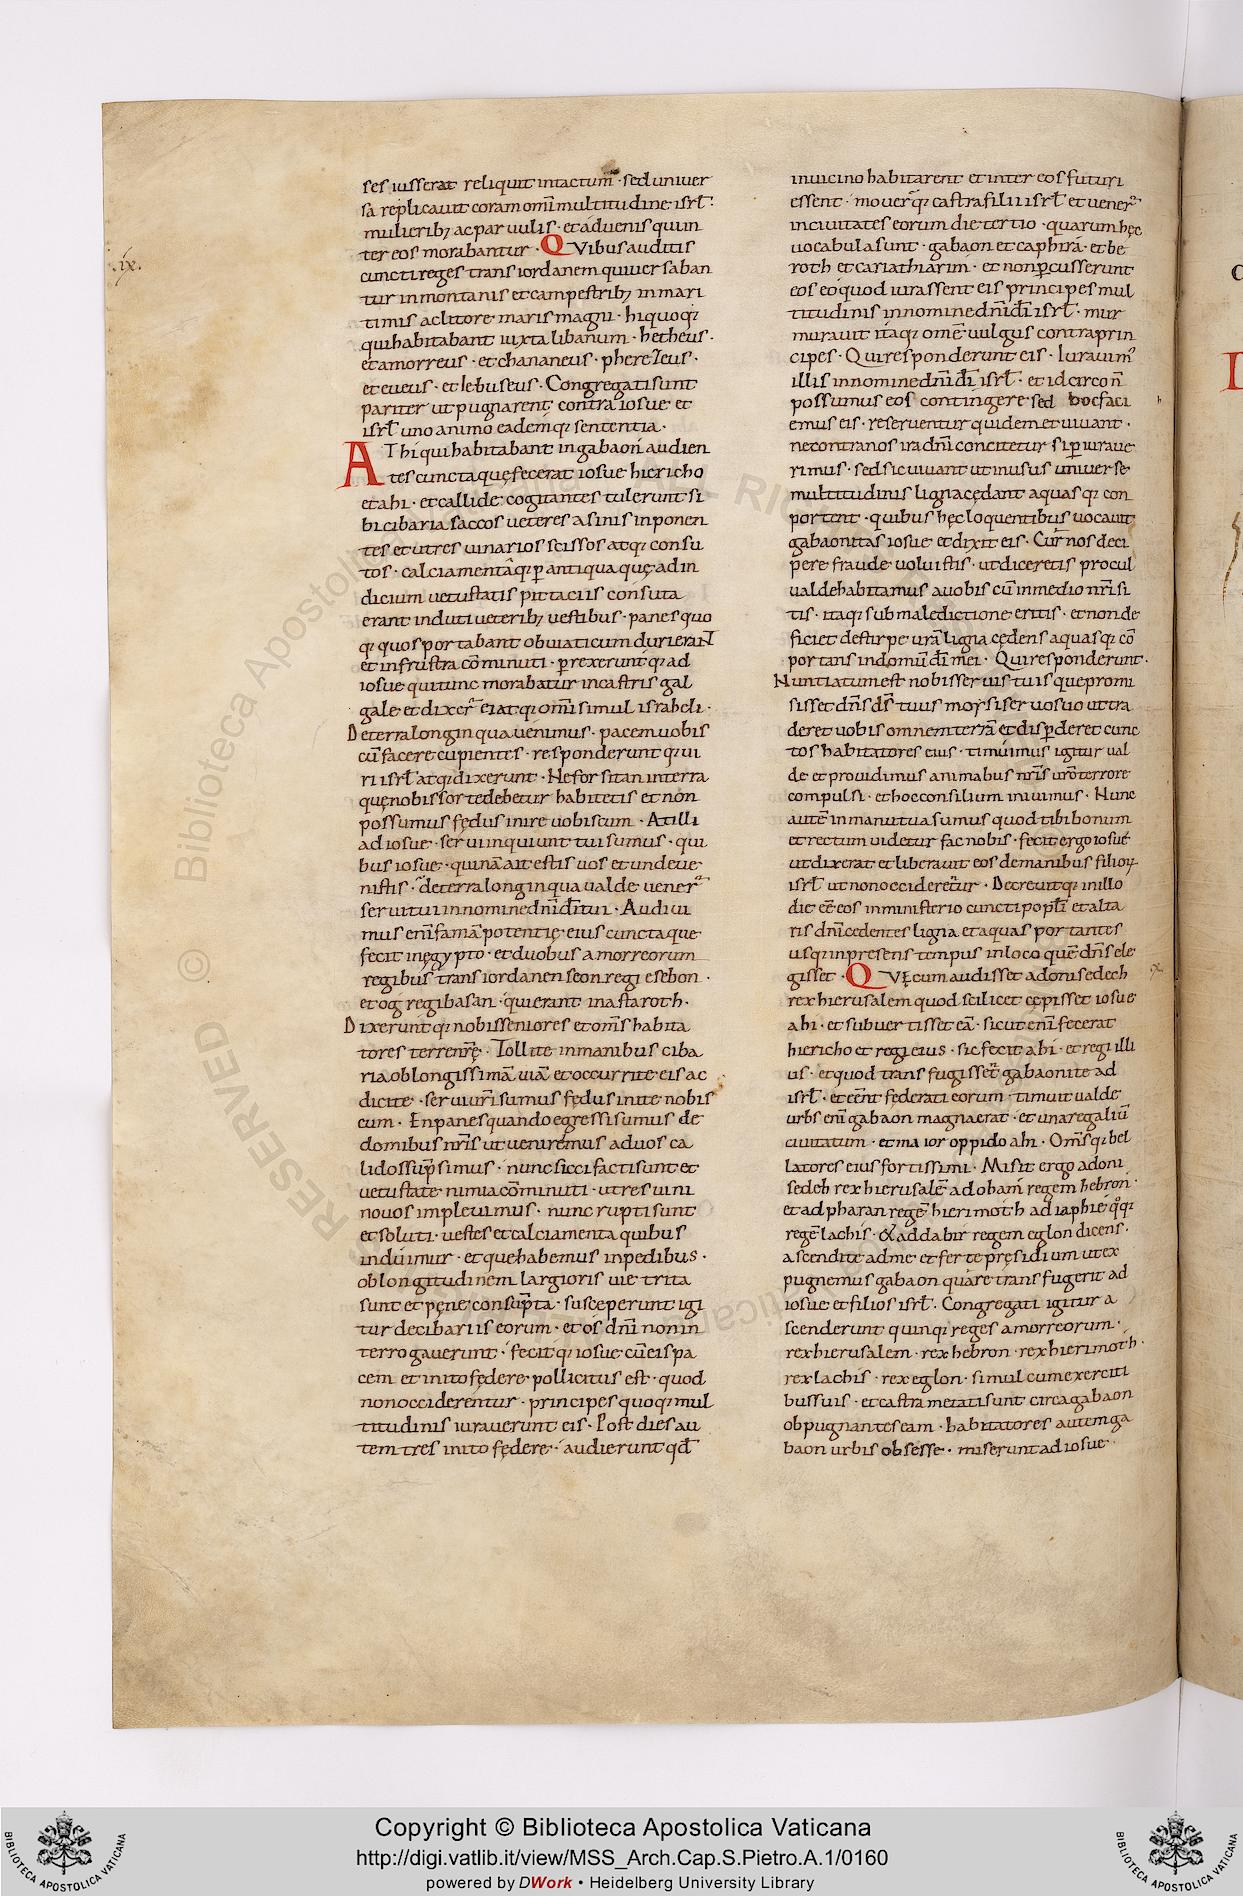 ses iusserat reliquit intactum · sed uniuer
sa replicauit coram omi multitudine isrl ·
mulierib; ac paruulis · et aduenis qui in
ter eos morabantur · QVibus auditis
.ix.
cuncti reges trans iordanem qui uersaban
tur in montanis et campestrib; in mari
timis ac litore maris magni · hi quoq;
qui habitabant iuxta libanum · hetheus ·
et amorreus · et chananeus · pherezeus ·
et eueus · et iebuseus · Congregati sunt
pariter ut pugnarent contra iosue et
isrl uno animo eademq; sententia ·
AT hi qui habitabant in gabaon audien
tes cuncta quę fecerat iosue hiericho
et ahi · et callide cogitantes tulerunt si
bi cibaria saccos ueteres asinis inponen
tes et utres uinarios scissos atq; consu
tos · calciamentaq; p antiqua quę ad in
dicium uetustatis pittaciis consuta
erant induti ueterib; uestibus · panes quo
q; quos portabant ob uiaticum duri erant
et in frustra cominuti · p rexeruntq; ad
iosue qui tunc morabatur in castris gal
galę et dixer ei atq; omi simul israheli ·
De terra longinqua uenimus · pacem uobis
cu facere cupientes · responderuntq; ui
ri isrl atq; dixerunt · Ne forsitan in terra
quę nobis sorte debetur habitetis et non
possumus fędus inire uobiscum · At illi
ad iosue · serui inquiunt tui sumus · qui
bus iosue · quina ait estis uos et unde ue
nistis · de terra longinqua ualde uener
serui tui in nomine dni di tui · Audiui
mus eni fama potentię eius cuncta que
fecit in ęgypto · et duobus amorreorum
regibus trans iordanen seon regi esebon ·
et og regi basan · qui erant in astaroth ·
Dixeruntq; nobis seniores et oms habita
tores terre nrę · Tollite in manibus ciba
ria ob longissima uia et occurrite eis ac
dicite · serui uri sumus fędus inite nobis
cum · En panes quando egressi sumus de
domibus nris ut ueniremus ad uos ca
lidos supsimus · nunc sicci facti sunt et
uetustate nimia cominuti · utres uini
nouos impleuimus · nunc rupti sunt
et soluti · uestes et calciamenta quibus
induimur · et que habemus in pedibus ·
ob longitudinem largioris uie trita
sunt et pęne consupta · susceperunt igi
tur de cibariis eorum · et os dni non in
terrogauerunt · fecitq; iosue cu eis pa
cem et inito fędere pollicitus est · quod
non occiderentur · principes quoq; mul
titudinis iurauerunt eis · Post dies au
tem tres initi fędere · audierunt qd
in uicino habitarent et inter eos futuri
essent · mouerq; castra filii isrl et uener
in ciuitates eorum die tertio · quarum hęc
uocabula sunt · gabaon et caphira · et be
roth et cariathiarim · et non pcusserunt
eos eo quod iurassent eis principes mul
titudinis in nomine dni di isrl · mur
murauit itaq; ome uulgus contra prin
cipes · Qui responderunt eis · Iurauim
illis in nomine dni di isrl · et idcirco n
possumus eos contingere sed hoc faci
emus eis · reseruentur quidem et uiuant ·
ne contra nos ira dni concitetur si p iuraue
rimus · sed sic uiuant ut in usus uniuerse
multitudinis ligna cędant aquasq; con
portent · quibus hęc loquentibus uocauit
gabaonitas iosue et dixit eis · Cur nos deci
pere fraude uoluistis · ut diceretis procul
ualde habitamus a uobis cu in medio nri si
tis · itaq; sub maledictione eritis · et non de
ficiet de stirpe ura ligna cędens aquasq; co
portans in domu di mei · Qui responderunt ·
Nuntiatum est nobis seruis tuis que promi
sisset dns ds tuus moysi seruo suo ut tra
deret uobis omnem terra et disperderet cunc
tos habitatores eius · timuimus igitur ual
de et prouidimus animabus nris uro terrore
compulsi · et hoc consilium iniuimus · Nunc
aute in manu tua sumus quod tibi bonum
et rectum uidetur fac nobis · fecit ergo iosue
ut dixerat et liberauit eos de manibus filior
isrl ut non occideretur · Decreuitq; in illo
die ee eos in ministerio cuncti popli et alta
ris dni cedentes ligna et aquas portantes
usq; in presens tempus in loco que dns ele
gisset · QVę cum audisset adonisedech
.x.
rex hierusalem quod scilicet cępisset iosue
ahi · et subuertisset ea · sicut eni fecerat
hiericho et regi eius · sic fecit ahi · et regi illi
us · et quod transfugisset gabaonite ad
isrl · et eent fęderati eorum · timuit ualde
urbs eni gabaon magna erat · et una regaliu
ciuitatum · et maior oppido ahi · Omsq; bel
latores eius fortissimi · Misit ergo adoni
sedeh rex hierusale ad oham regem hebron ·
et ad pharan rege hierimoth ad iaphie qoq;
rege lachis · & ad dabir regem eglon dicens ·
ascendite ad me et ferte presidium ut ex
pugnemus gabaon quare transfugerit ad
iosue et filios isrl · Congregati igitur a
scenderunt quinq; reges amorreorum ·
rex hierusalem · rex hebron · rex hierimoth ·
rex lachis · rex eglon · simul cum exerciti
bus suis · et castra metati sunt circa gabaon
obpugnantes eam · habitatores autem ga
baon urbis obsesse · miserunt ad iosue
Copyright © Biblioteca Apostolica Vaticana
http://digi.vatlib.it/view/MSS_Arch.Cap.S.Pietro.A.1/0160
powered by DWork • Heidelberg University Library
BIBLIOTECA APOSTOLICA VATICANA
BIBLIOTECA APOSTOLICA VATICANA